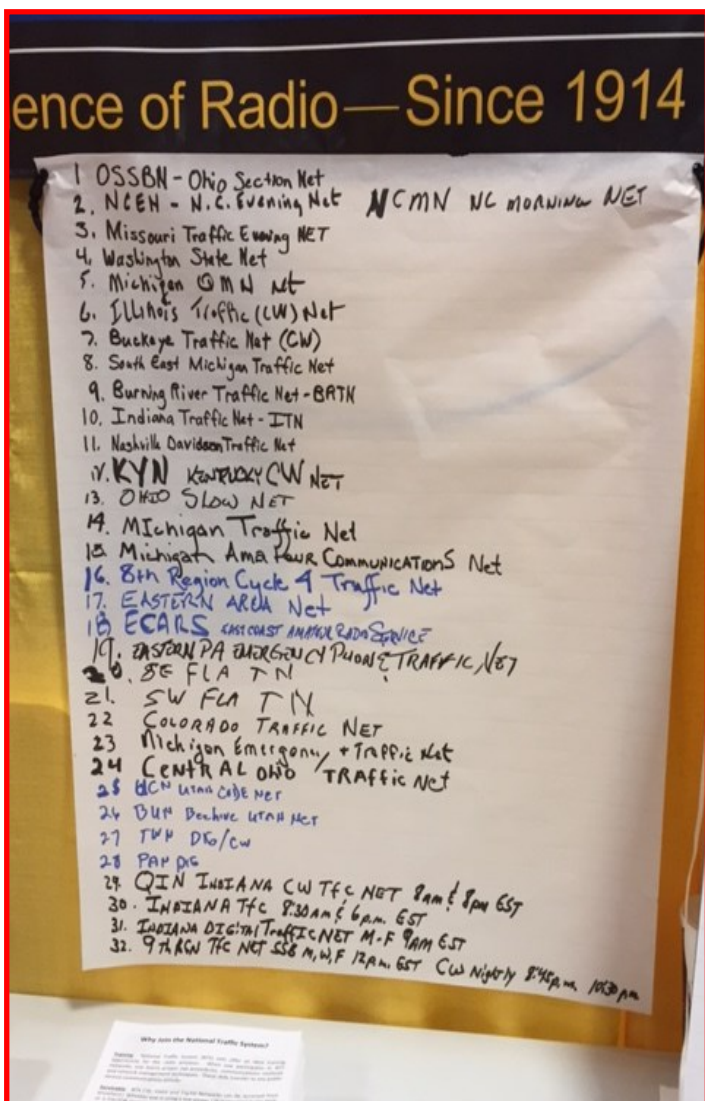 ence of Radio—Since 1914
1 OSSBN - Ohio Section Net
2. NCEN - N.C. Evening Net NCMN NC MORNING NET
3. Missouri Traffic Evening NET
4. Washington State Net
5. Michigan QMN Net
6. Illinois Traffic (CW) Net
7. Buckeye Traffic Net (CW)
8. South East Michigan Traffic Net
9. Burning River Traffic Net - BRTN
10. Indiana Traffic Net - ITN
11. Nashville Davidson Traffic Net
12. KYN KENTUCKY CW NET
13. OHIO SLOW NET
14. Michigan Traffic Net
15. Michigan Amateur Communications Net
16. 8th Region Cycle 4 Traffic Net
17. EASTERN AREA Net
18 ECARS EAST COAST AMATEUR RADIO SERVICE
19. EASTERN PA EMERGENCY PHONE & TRAFFIC NET
20. SE FLA TN
21. SW FLA TN
22 COLORADO TRAFFIC NET
23 Michigan Emergency + Traffic Net
24 CENTRAL OHIO TRAFFIC Net
25 UCN UTAH CODE NET
26 BUN Beehive UTAH NET
27 TWN DIG/CW
28 PAN DIG
29. QIN INDIANA CW TFC NET 8am & 8pm EST
30. INDIANA TFC 8:30AM & 6p.m. EST
31. INDIANA DIGITAL TRAFFIC NET M-F 9AM EST
32. 9th RGN TFC NET SSB M,W,F 12p.m. EST CW Nightly 8:45p.m. 10:30pm
Why Join the National Traffic System?